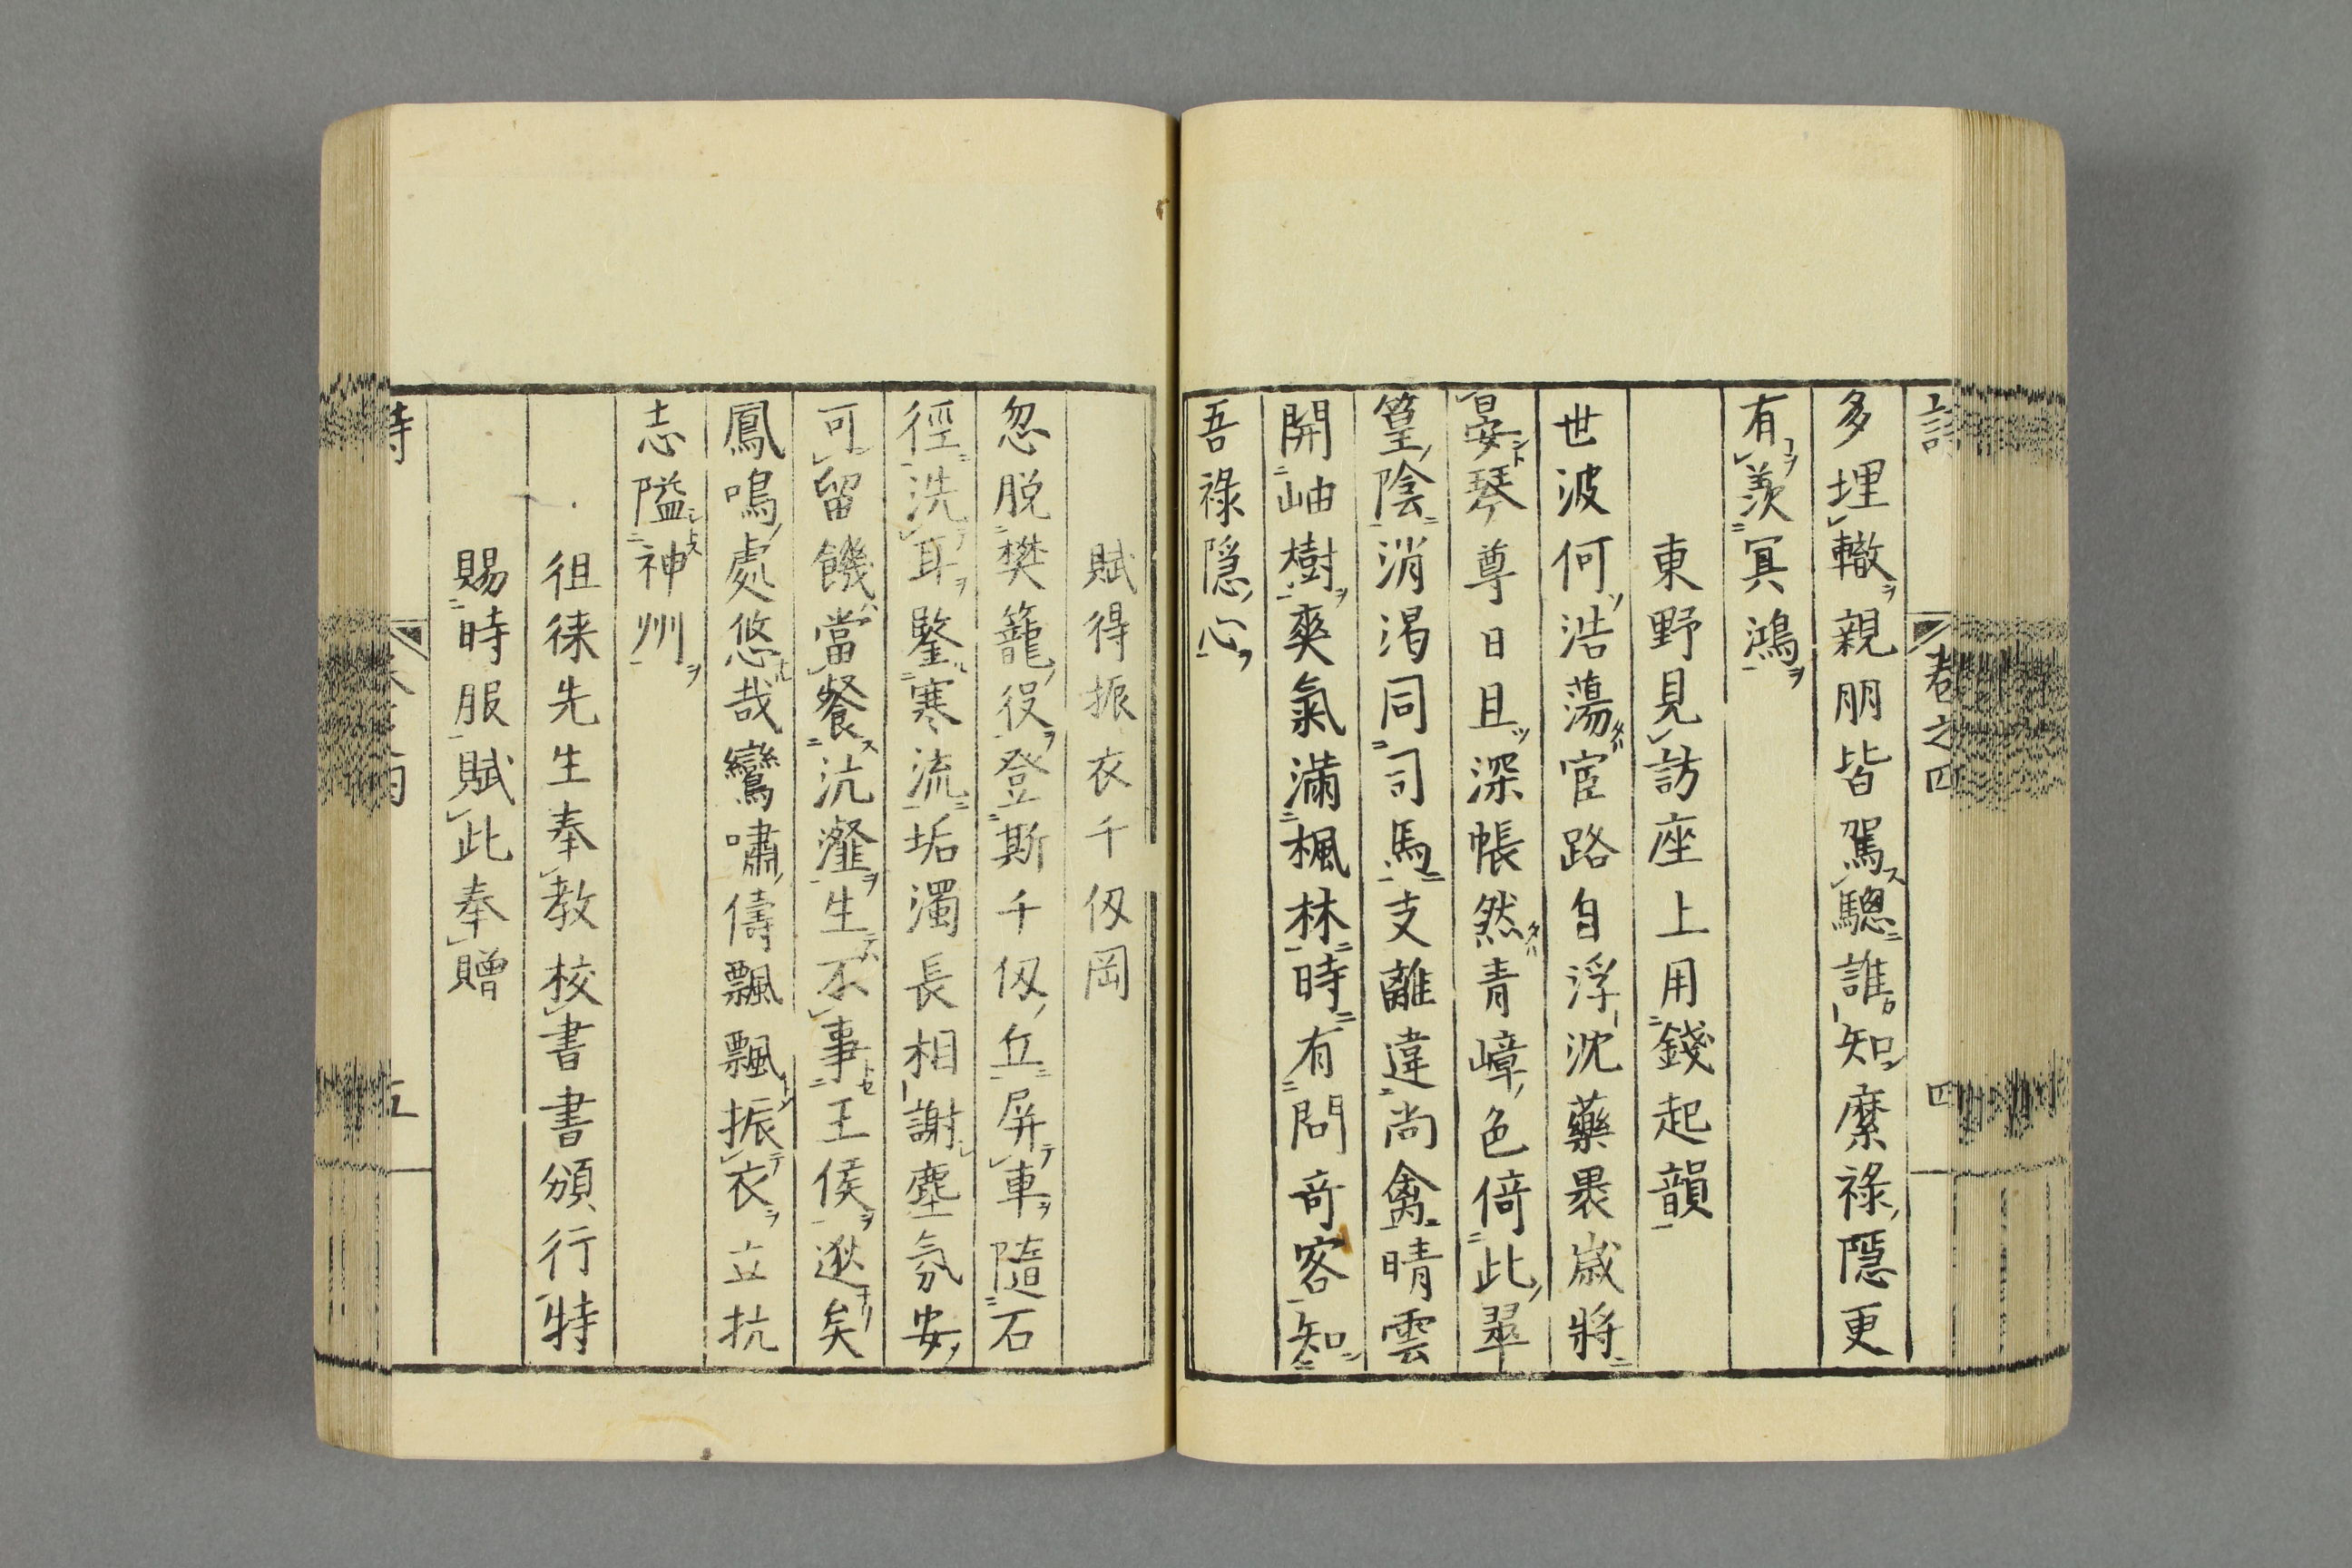 多埋轍親朋皆駕驄誰知縻祿隱更
有羨冥鴻
東野見訪座上用錢起韻
世波何浩蕩宦路自浮沈藥裹歳將
晏琴尊日且深帳然青嶂色倚此翠
篁陰消渴同司馬支離違尚禽晴雲
開岫樹爽氣滿楓林時有問奇客知
吾祿隱心
賦得振衣千仭岡
忽脱樊籠役登斯千仭丘屏車隨石
徑洗耳鑒寒流垢濁長相謝塵氛安
可留饑當餐沆瀣生不事王侯逖矣
鳳鳴處悠哉鸞嘯儔飄飄振衣立抗
志隘神州
徂徠先生奉教校書書頒行特
賜時服賦此奉贈
卷之四
四